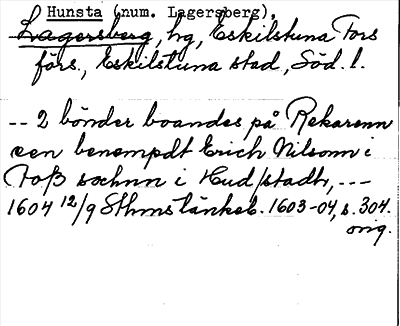 Hunsta (num. Lagersberg),
Lagersberg, hg, Eskilstuna Fors
förs., Eskilstuna stad, Söd. l.
-- 2 bönder boandes på Rekarnn
een benempdt Erich Nilsonn i
Foß sochnn i Hud/stadtr, ---
1604 12/9 Sthms tänkeb. 1603-04, s. 304.
orig.